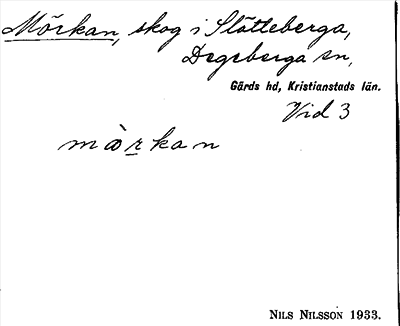 Mörkan, skog i Slätteberga,
Degeberga sn,
Gärds hd, Kristianstads län.
Vid 3
mö̀r̲kan
NILS NILSSON 1933.